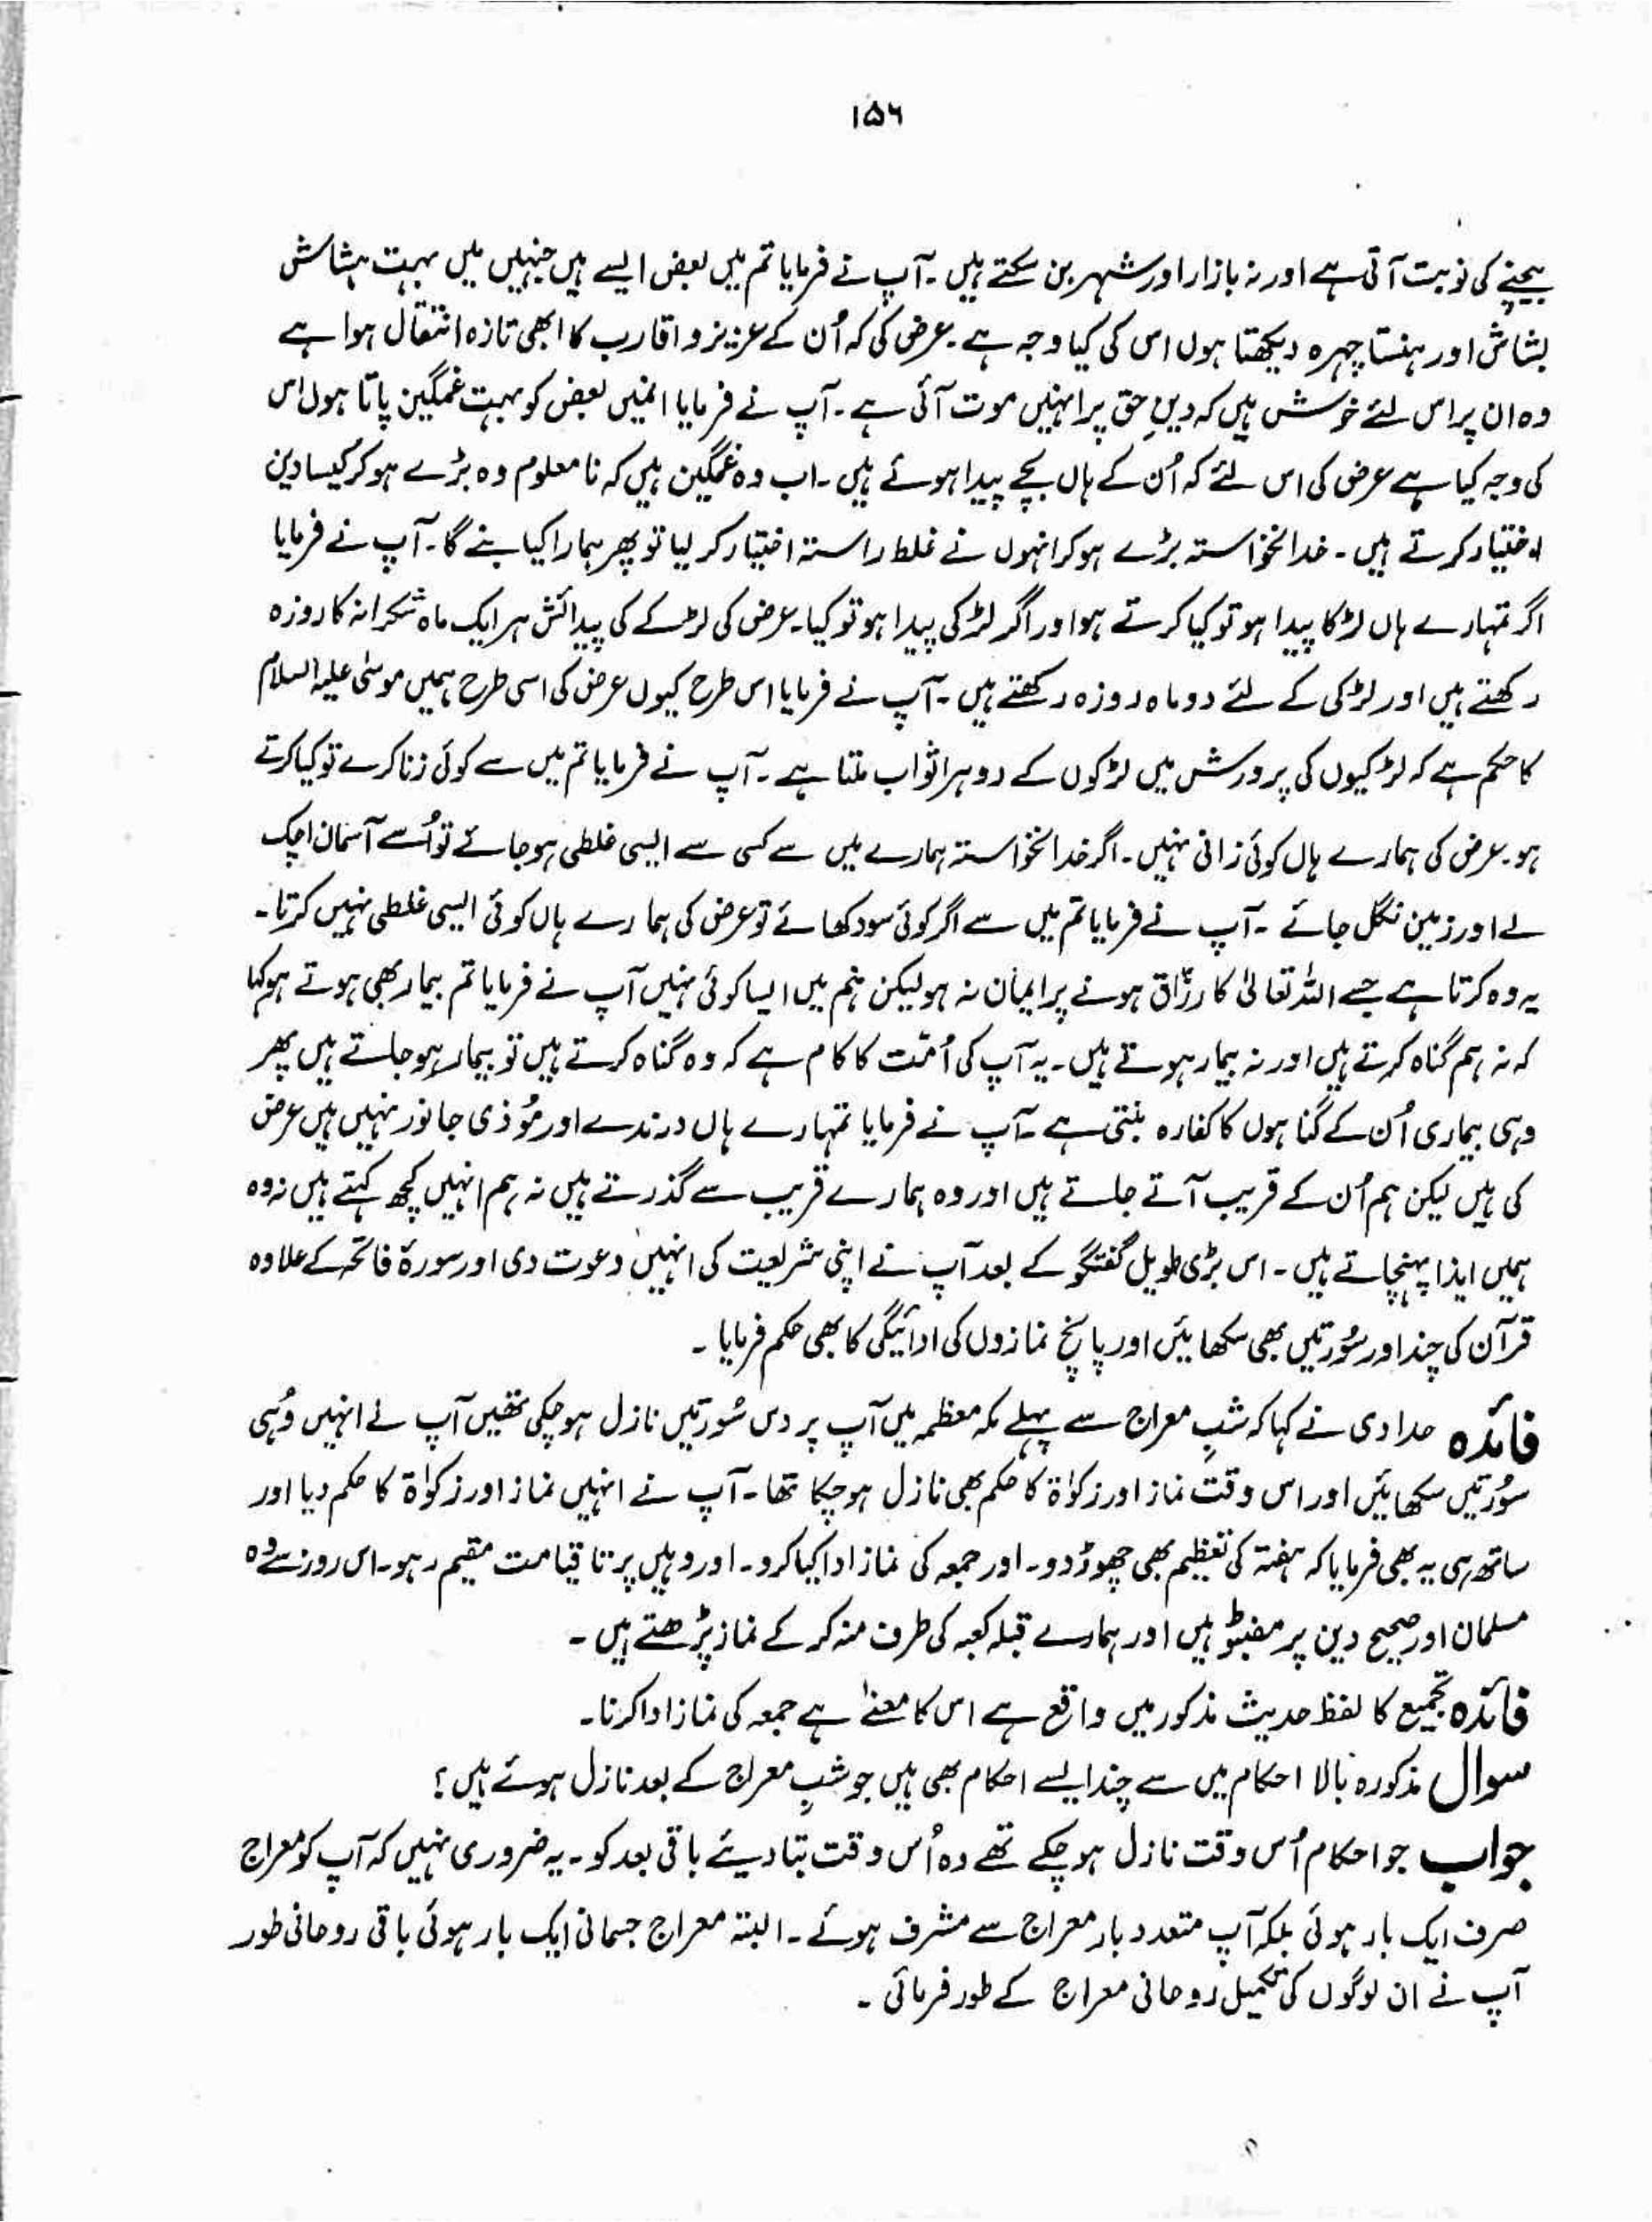 ۱۵۶
بیچنے کی نوبت آتی ہے اور نہ بازار اور شہر بن سکتے ہیں ۔ آپ نے فرمایا تم میں بعض ایسے ہیں جنہیں میں بہت ہشاش
بشاش اور ہنستا چہرہ دیکھتا ہوں اس کی کیا وجہ ہے ۔ عرض کی کہ اُن کے عزیز و اقارب کا ابھی تازہ انتقال ہوا ہے
وہ ان پر اس لئے خوش ہیں کہ دینِ حق پر انہیں موت آئی ہے ۔ آپ نے فرمایا انمیں بعض کو بہت غمگین پاتا ہوں اس
کی وجہ کیا ہے عرض کی اس لئے کہ اُن کے ہاں بچے پیدا ہوئے ہیں ۔ اب وہ غمگین ہیں کہ نا معلوم وہ بڑے ہو کر کیسا دین
اختیار کرتے ہیں ۔ خدانخواستہ بڑے ہو کر انہوں نے غلط راستہ اختیار کر لیا تو پھر ہمارا کیا بنے گا ۔ آپ نے فرمایا
اگر تمہارے ہاں لڑکا پیدا ہو تو کیا کرتے ہو اور اگر لڑکی پیدا ہو تو کیا ۔ عرض کی لڑکے کی پیدائش ہر ایک ماہ شکرانہ کا روزہ
رکھتے ہیں اور لڑکی کے لئے دو ماہ روزہ رکھتے ہیں ۔ آپ نے فرمایا اس طرح کیوں عرض کی اسی طرح ہمیں موسیٰ علیہ السلام
کا حکم ہے کہ لڑکیوں کی پرورش میں لڑکوں کے دوہرا ثواب ملتا ہے ۔ آپ نے فرمایا تم میں سے کوئی زنا کرے تو کیا کرتے
ہو ۔ عرض کی ہمارے ہاں کوئی زانی نہیں ۔ اگر خدانخواستہ ہمارے میں سے کسی سے ایسی غلطی ہو جائے تو اُسے آسمان اچک
لے اور زمین نگل جائے ۔ آپ نے فرمایا تم میں سے اگر کوئی سود کھائے تو عرض کی ہمارے ہاں کوئی ایسی غلطی نہیں کرتا ۔
یہ وہ کرتا ہے جسے اللہ تعالیٰ کا رزّاق ہونے پر ایمان نہ ہو لیکن ہم میں ایسا کوئی نہیں آپ نے فرمایا تم بیمار بھی ہوتے ہو کہا
کہ نہ ہم گناہ کرتے ہیں اور نہ بیمار ہوتے ہیں ۔ یہ آپ کی اُمّت کا کام ہے کہ وہ گناہ کرتے ہیں تو بیمار ہو جاتے ہیں پھر
وہی بیماری اُن کے گناہوں کا کفارہ بنتی ہے ۔ آپ نے فرمایا تمہارے ہاں درندے اور مُوذی جانور نہیں ہیں عرض
کی ہیں لیکن ہم اُن کے قریب آتے جاتے ہیں اور وہ ہمارے قریب سے گذرتے ہیں نہ ہم انہیں کچھ کہتے ہیں نہ وہ
ہمیں ایذا پہنچاتے ہیں ۔ اس بڑی طویل گفتگو کے بعد آپ نے اپنی شریعت کی انہیں دعوت دی اور سورۃ فاتحہ کے علاوہ
قرآن کی چند اور سُورتیں بھی سکھائیں اور پانچ نمازوں کی ادائیگی کا بھی حکم فرمایا ۔
فائدہ حدادی نے کہا کہ شبِ معراج سے پہلے مکہ معظمہ میں آپ پر دس سُورتیں نازل ہو چکی تھیں آپ نے انہیں وُہی
سُورتیں سکھائیں اور اس وقت نماز اور زکوٰۃ کا حکم بھی نازل ہو چکا تھا ۔ آپ نے انہیں نماز اور زکوٰۃ کا حکم دیا اور
ساتھ ہی یہ بھی فرمایا کہ ہفتہ کی تعظیم بھی چھوڑ دو ۔ اور جمعہ کی نماز ادا کیا کرو ۔ اور وہیں پر تا قیامت مقیم رہو ۔ اس روز سے وہ
مسلمان اور صحیح دین پر مضبوط ہیں اور ہمارے قبلہ کعبہ کی طرف منہ کر کے نماز پڑھتے ہیں ۔
فائدہ تجمیع کا لفظ حدیث مذکور میں واقع ہے اس کا معنےٰ ہے جمعہ کی نماز ادا کرنا ۔
سوال مذکورہ بالا احکام میں سے چند ایسے احکام بھی ہیں جو شبِ معراج کے بعد نازل ہوئے ہیں ؟
جواب جو احکام اُس وقت نازل ہو چکے تھے وہ اُس وقت بتا دیئے باقی بعد کو ۔ یہ ضروری نہیں کہ آپ کو معراج
صرف ایک بار ہوئی بلکہ آپ متعدد بار معراج سے مشرف ہوئے ۔ البتہ معراج جسمانی ایک بار ہوئی باقی روحانی طور
آپ نے ان لوگوں کی تکمیل روحانی معراج کے طور فرمائی ۔